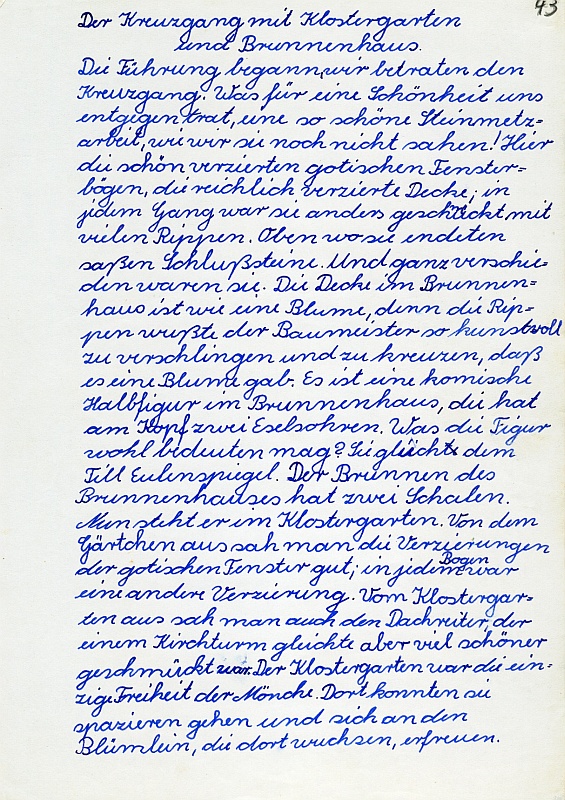 43
Der Kreuzgang mit Klostergarten
und Brunnenhaus.
Die Führung begann, wir betraten den
Kreuzgang. Was für eine Schönheit uns
entgegen trat, eine so schöne Steinmetz=
arbeit, wie wir sie noch nicht sahen! Hier
die schön verzierten gotischen Fenster=
bögen, die reichlich verzierte Decke; in
jedem Gang war sie anders geschmückt mit
vielen Rippen. Oben wo sie endeten
saßen Schlußsteine. Und ganz verschie=
den waren sie. Die Decke im Brunnen=
haus ist wie eine Blume, denn die Rip=
pen wußte der Baumeister so kunstvoll
zu verschlingen und zu kreuzen, daß
es eine Blume gab. Es ist eine komische
Halbfigur im Brunnenhaus, die hat
am Kopf zwei Eselsohren. Was die Figur
wohl bedeuten mag? Sie gleicht dem
Till Eulenspiegel. Der Brunnen des
Brunnenhauses hat zwei Schalen.
Nun steht er im Klostergarten. Von dem
Gärtchen aus sah man die Verzierungen
der gotischen Fenster gut; in jedem Bogen war
eine andere Verzierung. Vom Klostergar=
ten aus sah man auch den Dachreiter, der
einem Kirchturm gleichte aber viel schöner
geschmückt war. Der Klostergarten war die ein=
zige Freiheit der Mönche. Dort konnten sie
spazieren gehen und sich an den
Blümlein, die dort wuchsen, erfreuen.